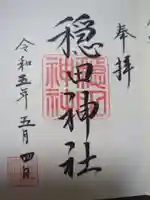 奉拝
穏田神社
令和五年五月四日